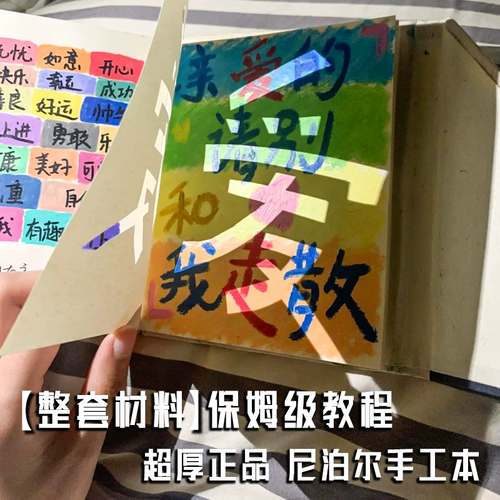 无忧 如意 开心
快乐 幸运 成功
善良 好运
上进 勇敢 乐
康 美好 可
重 自
我 有趣
亲爱的
请别
和
我走散
【整套材料】保姆级教程
超厚正品 尼泊尔手工本